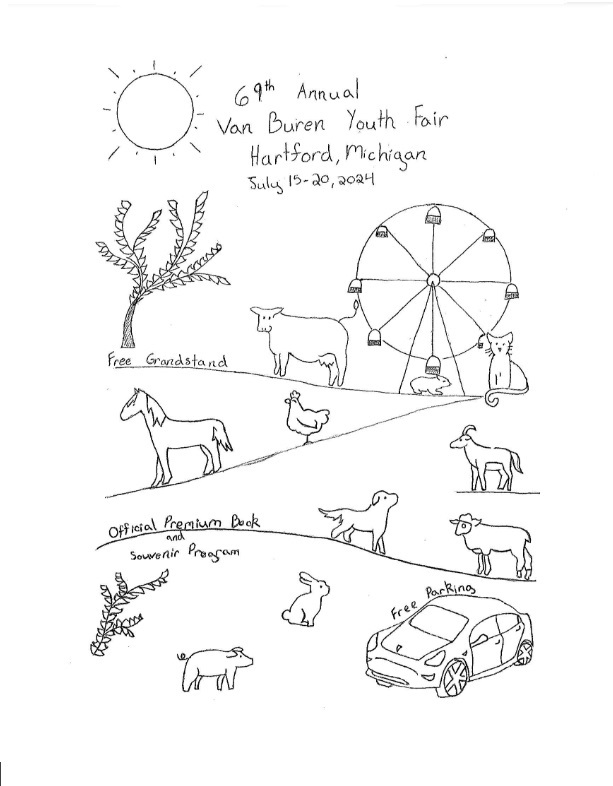 69th Annual
Van Buren Youth Fair
Hartford, Michigan
July 15-20, 2024
Free Grandstand
Official Premium Book
and
Souvenir Program
Free Parking